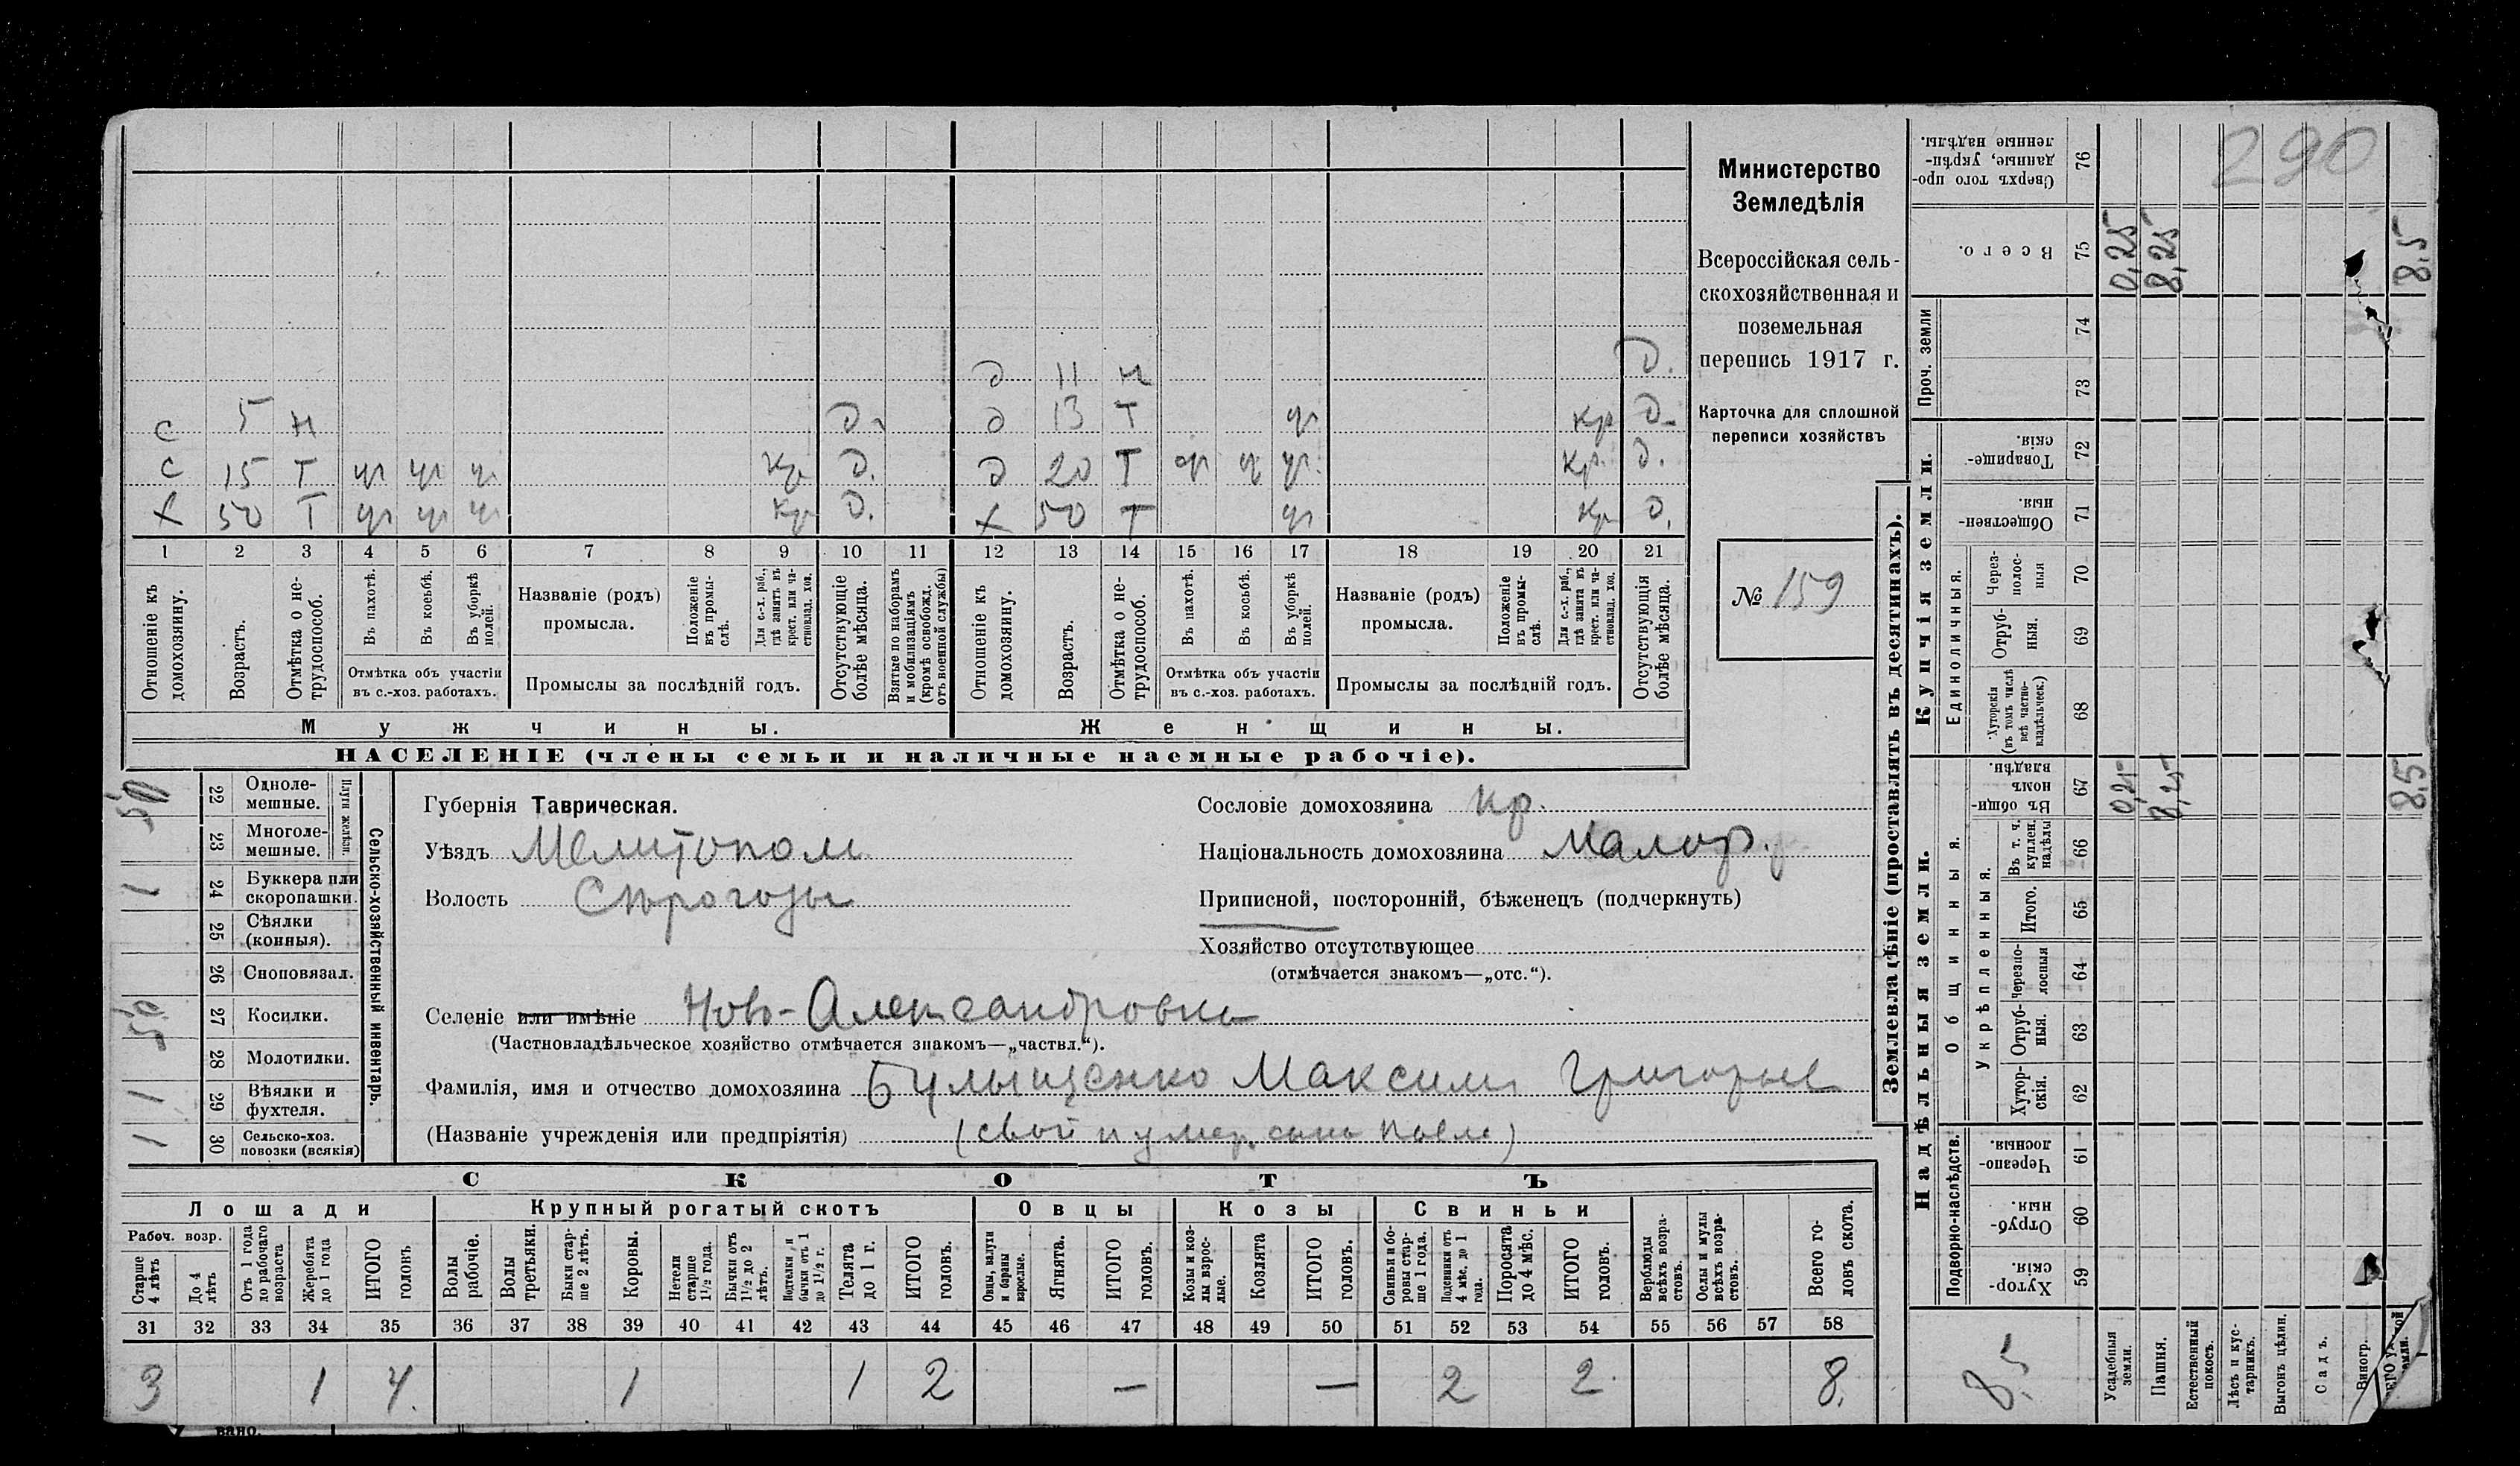 290
Министерство
Земледѣлія
Всероссійская сель-
скохозяйственная и
поземельная
перепись 1917 г.
Карточка для сплошной
переписи хозяйствъ
№ 159
д 11 н д.
с 5 н д. д 13 т ур кр д.
с 15 т ур ур ур кр д. д 20 т ур ур ур. кр. д.
х 50 т ур ур ур кр д. х 50 т ур кр д.
1 2 3 4 5 6 7 8 9 10 11 12 13 14 15 16 17 18 19 20 21
Отношеніе къ домохозяину.
Возрастъ.
Отмѣтка о не-трудоспособ.
Въ пахотѣ.
Въ косьбѣ.
Въ уборкѣ полей.
Отмѣтка объ участіи
въ с.-хоз. работахъ.
Названіе (родъ)
промысла.
Положеніе въ промы-слѣ.
Для с.-х. раб., гдѣ занятъ въ крест. или ча-стновлад. хоз.
Промыслы за послѣдній годъ.
Отсутствующіе болѣе мѣсяца.
Взятые по наборамъ и мобилизаціямъ (кромѣ освобожд. отъ военной службы)
Отношеніе къ домохозяину.
Возрастъ.
Отмѣтка о не-трудоспособ.
Въ пахотѣ.
Въ косьбѣ.
Въ уборкѣ полей.
Отмѣтка объ участіи
въ с.-хоз. работахъ.
Названіе (родъ)
промысла.
Положеніе въ промы-слѣ.
Для с.-х. раб., гдѣ занята въ крест. или ча-стновлад. хоз.
Промыслы за послѣдній годъ.
Отсутствующія болѣе мѣсяца.
Мужчины. Женщины.
НАСЕЛЕНІЕ (члены семьи и наличные наемные рабочіе).
Сельско-хозяйственный инвентарь.
Плуги желѣзн.
22 Одноле-мешные.
23 Многоле-мешные.
1 24 Буккера или скоропашки.
25 Сѣялки (конныя).
26 Сноповязал.
27 Косилки.
28 Молотилки.
1 29 Вѣялки и фухтеля.
1 30 Сельско-хоз. повозки (всякія)
Губернія Таврическая.
Уѣздъ Мелитопол
Волость Сѣрогозы
Сословіе домохозяина кр.
Національность домохозяина малор.
Приписной, посторонній, бѣженецъ (подчеркнуть)
Хозяйство отсутствующее
(отмѣчается знакомъ—„отс.“).
Селеніе или имѣніе Ново-Александровка
(Частновладѣльческое хозяйство отмѣчается знакомъ—„частвл.“).
Фамилія, имя и отчество домохозяина Булыщенко Максим Григорьев
(Названіе учрежденія или предпріятія) (свой и умер. сына
СКОТЪ
Лошади Крупный рогатый скотъ Овцы Козы Свиньи
Рабоч. возр.
Старше 4 лѣтъ
До 4 лѣтъ
Отъ 1 года до рабочаго возраста
Жеребята до 1 года
ИТОГО головъ
Волы рабочіе.
Волы третьяки.
Быки стар-ше 2 лѣтъ.
Коровы.
Нетели старше 1½ года.
Бычки отъ 1½ до 2 лѣтъ.
Подтелки и бычки отъ 1 до 1½ г.
Телята до 1 г.
ИТОГО головъ.
Овцы, валухи и бараны взрослые.
Ягнята.
ИТОГО головъ.
Козы и коз-лы взрос-лые.
Козлята
ИТОГО головъ.
Свиньи и бо-ровы стар-ше 1 года.
Подсвинки отъ 4 мѣс. до 1 года.
Поросята до 4 мѣс.
ИТОГО головъ.
Верблюды всѣхъ возра-стовъ.
Ослы и мулы всѣхъ возра-стовъ.
Всего го-ловъ скота.
31 32 33 34 35 36 37 38 39 40 41 42 43 44 45 46 47 48 49 50 51 52 53 54 55 56 57 58
3 1 4. 1 1 2 — — 2 2 8.
Землевладѣніе (проставлять въ десятинахъ).
Надѣльныя земли. Купчія земли. Проч. земли
Подворно-наслѣдств. Общинныя. Укрѣпленныя. Единоличныя.
Сверхъ того про-данные, укрѣп-ленные надѣлы. 76
Всего. 75 0,25 8,25 8,5
74
73
Товарище-скія. 72
Обществен-ныя. 71
Через-полос-ныя 70
Отруб-ныя. 69
Хуторскія (въ томъ числѣ всѣ частно-владѣльческ.) 68
Въ общи-номъ владѣн. 67 0,25 8,25 8,5
Въ т. ч. куплен. надѣлы 66
Итого. 65
Черезпо-лосныя 64
Отруб-ныя. 63
Хутор-скія. 62
Черезпо-лосныя. 61
Отруб-ныя. 60
Хутор-скія. 59
8,5
Усадебныя земли.
Пашня.
Естественный покосъ.
Лѣсъ и кус-тарникъ.
Выгонъ цѣлин.
Садъ.
Виногр.
вано.